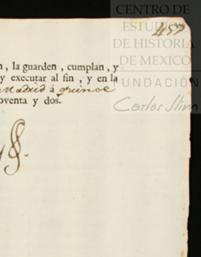 CENTRO DE
ESTUDIOS
DE HISTORIA
DE MEXICO
FUNDACIÓN
Carlos Slim
457
n, la guarden, cumplan, y
y executar al fin, y en la
Madrid á quince
oventa y dos.